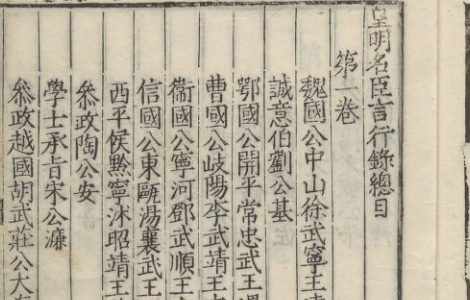 皇明名臣言行錄總目
第一卷
魏國公中山徐武寧王
誠意伯劉公基
鄂國公開平常忠武王
曹國公岐陽李武靖王
衞國公寧河鄧武順王
信國公東甌湯襄武王
西平侯黔寧沐昭靖王
叅政陶公安
學士承旨宋公濂
叅政越國胡武莊公大